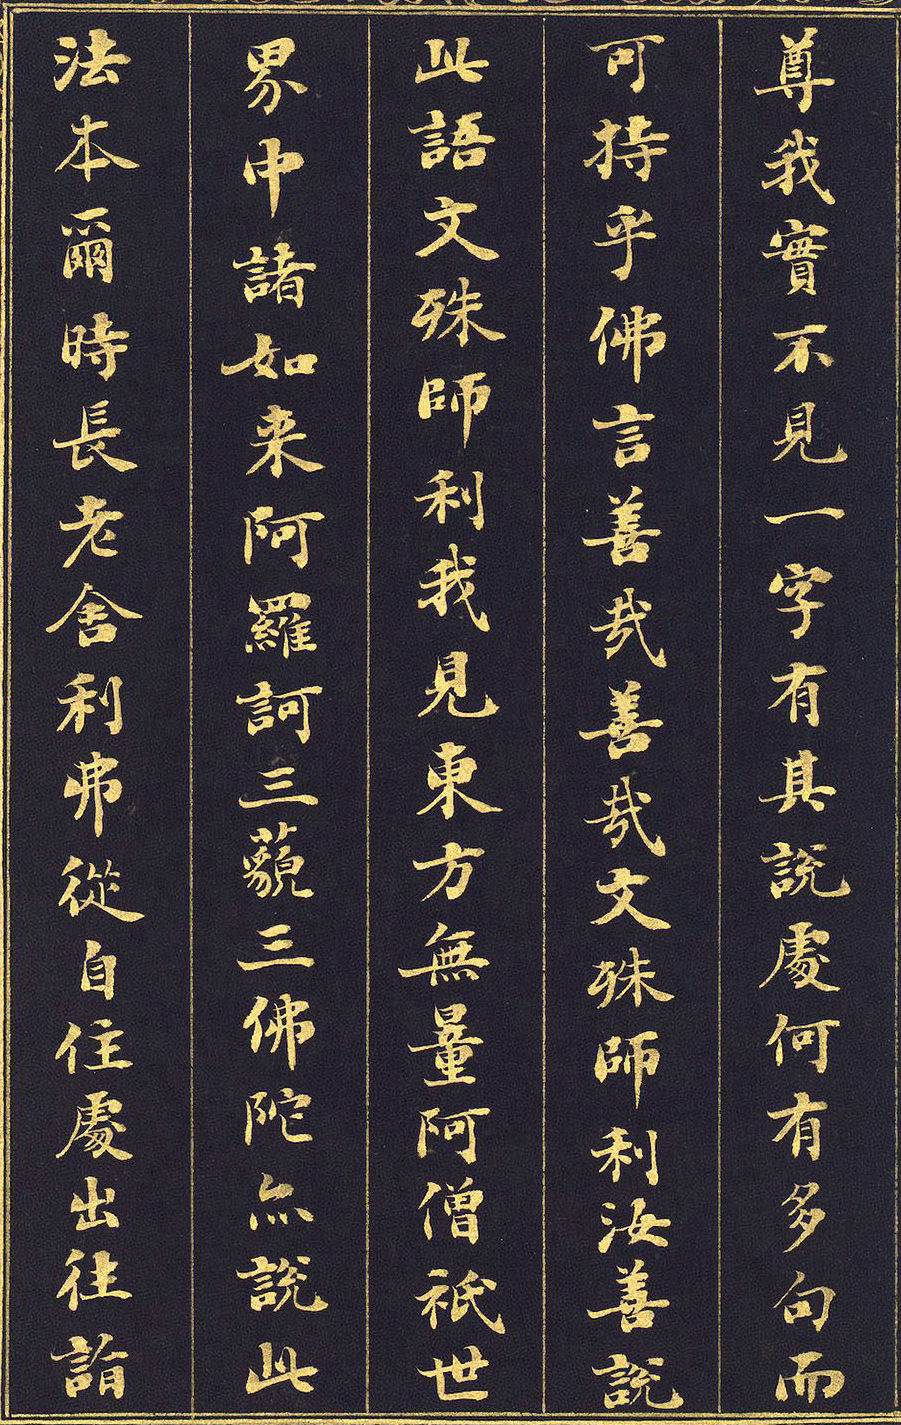 尊我實不見一字有其說處何有多句而
可持乎佛言善哉善哉文殊師利汝善說
此語文殊師利我見東方無量阿僧祇世
界中諸如来阿羅訶三藐三佛陀亦說此
法本爾時長老舍利弗從自住處出往詣